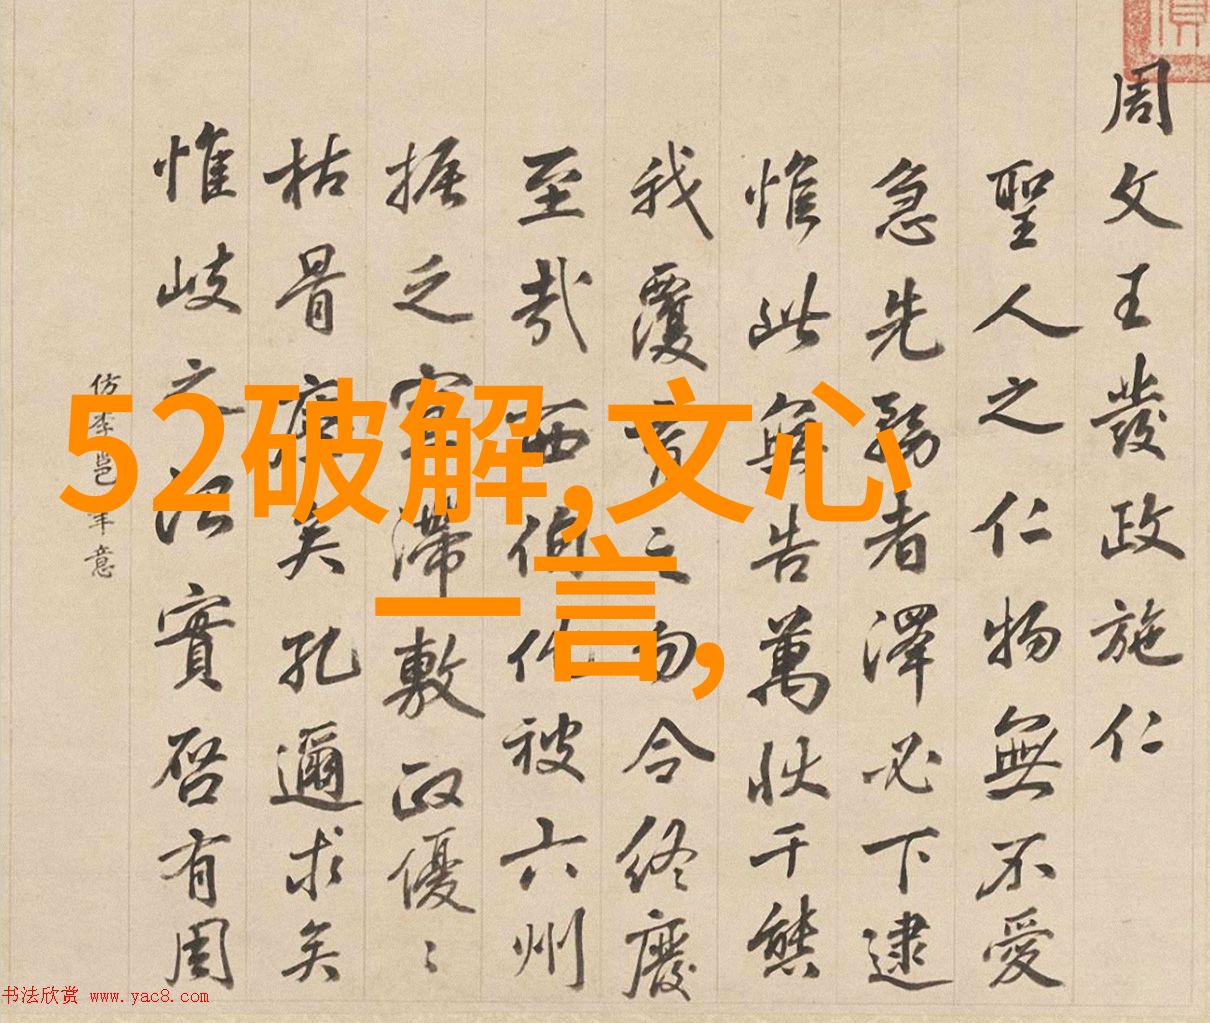 周文王發政施仁
聖人之仁物無不愛
急先務者澤必下逮
惟此無告萬狀千態
我覆之勿令終廢
至哉西伯被六州
振之滯敷政優〻
枯骨矣孔邇求矣
惟岐之治實啓有周
仿李邕筆意
52破解,文心
一言,
书法欣赏 www.yac8.com